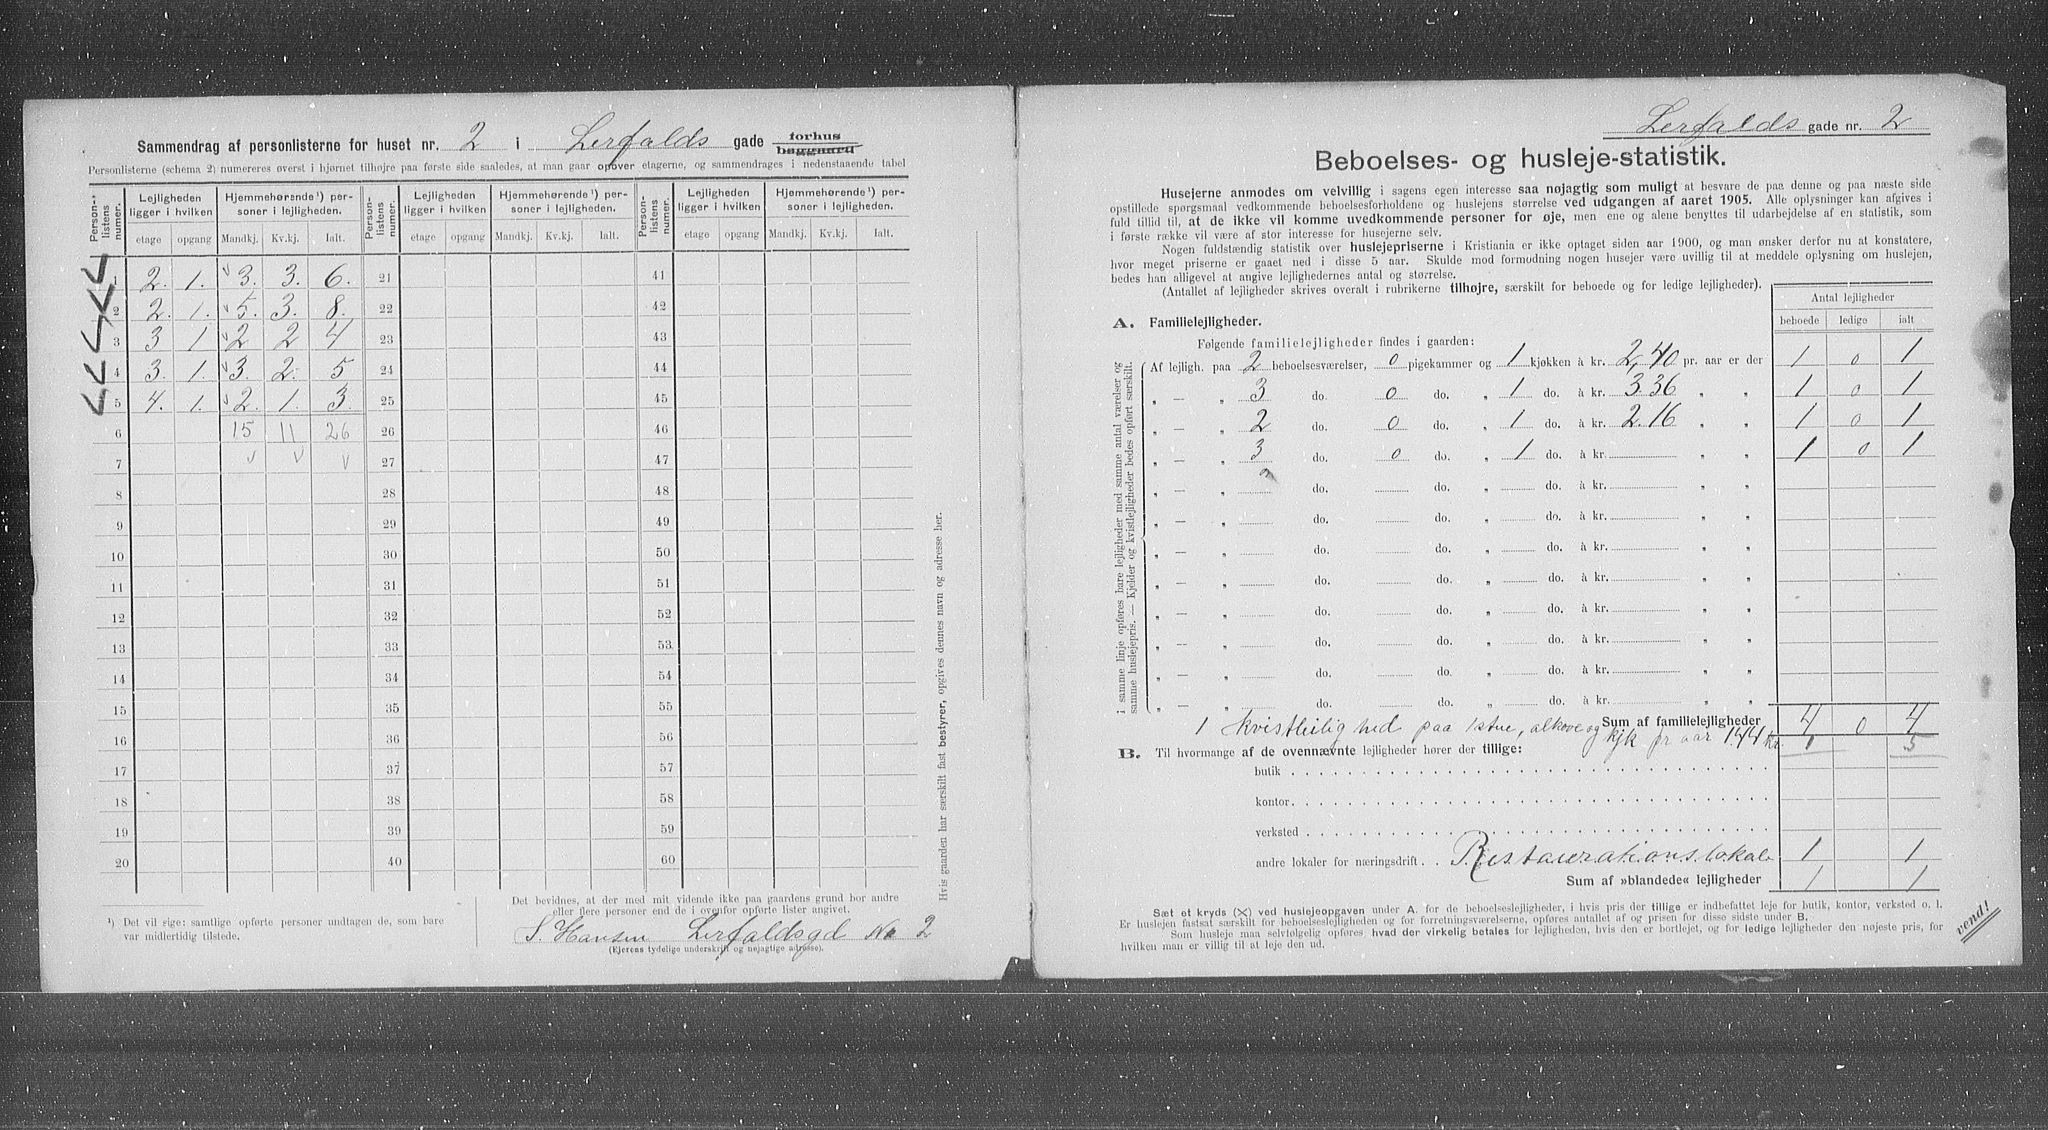 Sammendrag af personlisterne for huset nr. 2 i Lerfalds gade forhus baggaard
Personlisterne (schema 2) numereres øverst i hjørnet tilhøjre paa første side saaledes, at man gaar opover etagerne, og sammendrages i nedenstaaende tabel
Person-listens numer. Lejligheden ligger i hvilken Hjemmehørende¹) personer i lejligheden. Person-listens numer. Lejligheden ligger i hvilken Hjemmehørende¹) personer i lejligheden. Person-listens numer. Lejligheden ligger i hvilken Hjemmehørende¹) personer i lejligheden.
etage opgang Mandkj. Kv.kj. Ialt. etage opgang Mandkj. Kv.kj. Ialt. etage opgang Mandkj. Kv.kj. Ialt.
1 2. 1. 3. 3. 6. 21 41
2 2. 1. 5. 3. 8. 22 42
3 3 1 2 2 4 23 43
4 3. 1. 3. 2. 5 24 44
5 4. 1. 2. 1. 3. 25 45
6 15 11 26 26 46
7 v v v 27 47
8 28 48
9 29 49
10 30 50
11 31 51
12 32 52
13 33 53
14 34 54
15 35 55
16 36 56
17 37 57
18 38 58
19 39 59
20 40 60
¹) Det vil sige: samtlige opførte personer undtagen de, som bare
var midlertidig tilstede.
Det bevidnes, at der med mit vidende ikke paa gaardens grund bor andre
eller flere personer end de i ovenfor opførte lister angivet.
S. Hansen Lerfaldsgd No 2
(Ejerens tydelige underskrift og nøjagtige adresse).
Hvis gaarden har særskilt fast bestyrer, opgives dennes navn og adresse her.
Lerfalds gade nr. 2
Beboelses- og husleje-statistik.
Husejerne anmodes om velvillig i sagens egen interesse saa nøjagtig som muligt at besvare de paa denne og paa næste side
opstillede spørgsmaal vedkommende beboelsesforholdene og huslejens størrelse ved udgangen af aaret 1905. Alle oplysninger kan afgives i
fuld tillid til, at de ikke vil komme uvedkommende personer for øje, men ene og alene benyttes til udarbejdelse af en statistik, som
i første række vil være af stor interesse for husejerne selv.
Nogen fuldstændig statistik over huslejepriserne i Kristiania er ikke optaget siden aar 1900, og man ønsker derfor nu at konstatere,
hvor meget priserne er gaaet ned i disse 5 aar. Skulde mod formodning nogen husejer være uvillig til at meddele oplysning om huslejen,
bedes han alligevel at angive lejlighedernes antal og størrelse.
(Antallet af lejligheder skrives overalt i rubrikerne tilhøjre, særskilt for beboede og for ledige lejligheder).
Antal lejligheder
beboede ledige ialt
A. Familielejligheder.
Følgende familielejligheder findes i gaarden:
Af lejligh. paa 2 beboelsesværelser, 0 pigekammer og 1 kjøkken à kr. 2,40 pr. aar er der 1 0 1
„ — „ 3 do. 0 do. „ 1 do. à kr. 336 „ „ 1 0 1
„ — „ 2 do. 0 do. „ 1 do. à kr. 2.16 „ „ 1 0 1
„ — „ 3 do. 0 do. „ 1 do. à kr. „ „ 1 0 1
„ — „ do. do. „ do. à kr. „ „
„ — „ do. do. „ do. à kr. „ „
„ — „ do. do. „ do. à kr. „ „
„ — „ do. do. „ do. à kr. „ „
„ — „ do. do. „ do. à kr. „ „
„ — „ do. do. „ do. à kr. „ „
„ — „ do. do. „ do. à kr. „ „
„ — „ do. do. „ do. à kr. „ „
I samme linje opføres bare lejligheder med samme antal værelser og
samme huslejepris. — Kjelder og kvistlejligheder bedes opført særskilt.
Sum af familielejligheder 4 0 4
1 kvistleilighed paa 1 stue, alkove og kjk pr aar 144 Kr. 1 5
B. Til hvormange af de ovennævnte lejligheder hører der tillige:
butik
kontor
verksted
andre lokaler for næringsdrift . . Restaurationslokale 1 1
Sum af »blandede« lejligheder 1 1
Sæt et kryds (X) ved huslejeopgaven under A. for de beboelseslejligheder, i hvis pris der tillige er indbefattet leje for butik, kontor, verksted o. l.
Er huslejen fastsat særskilt for beboelseslejligheden og for forretningsværelserne, opføres antallet af og prisen for disse sidste under B.
Som husleje maa selvfølgelig opføres hvad der virkelig betales for lejligheden, hvis den er bortlejet, og for ledige lejligheder den nøjeste pris, for
hvilken man er villig til at leje den ud.
vend!